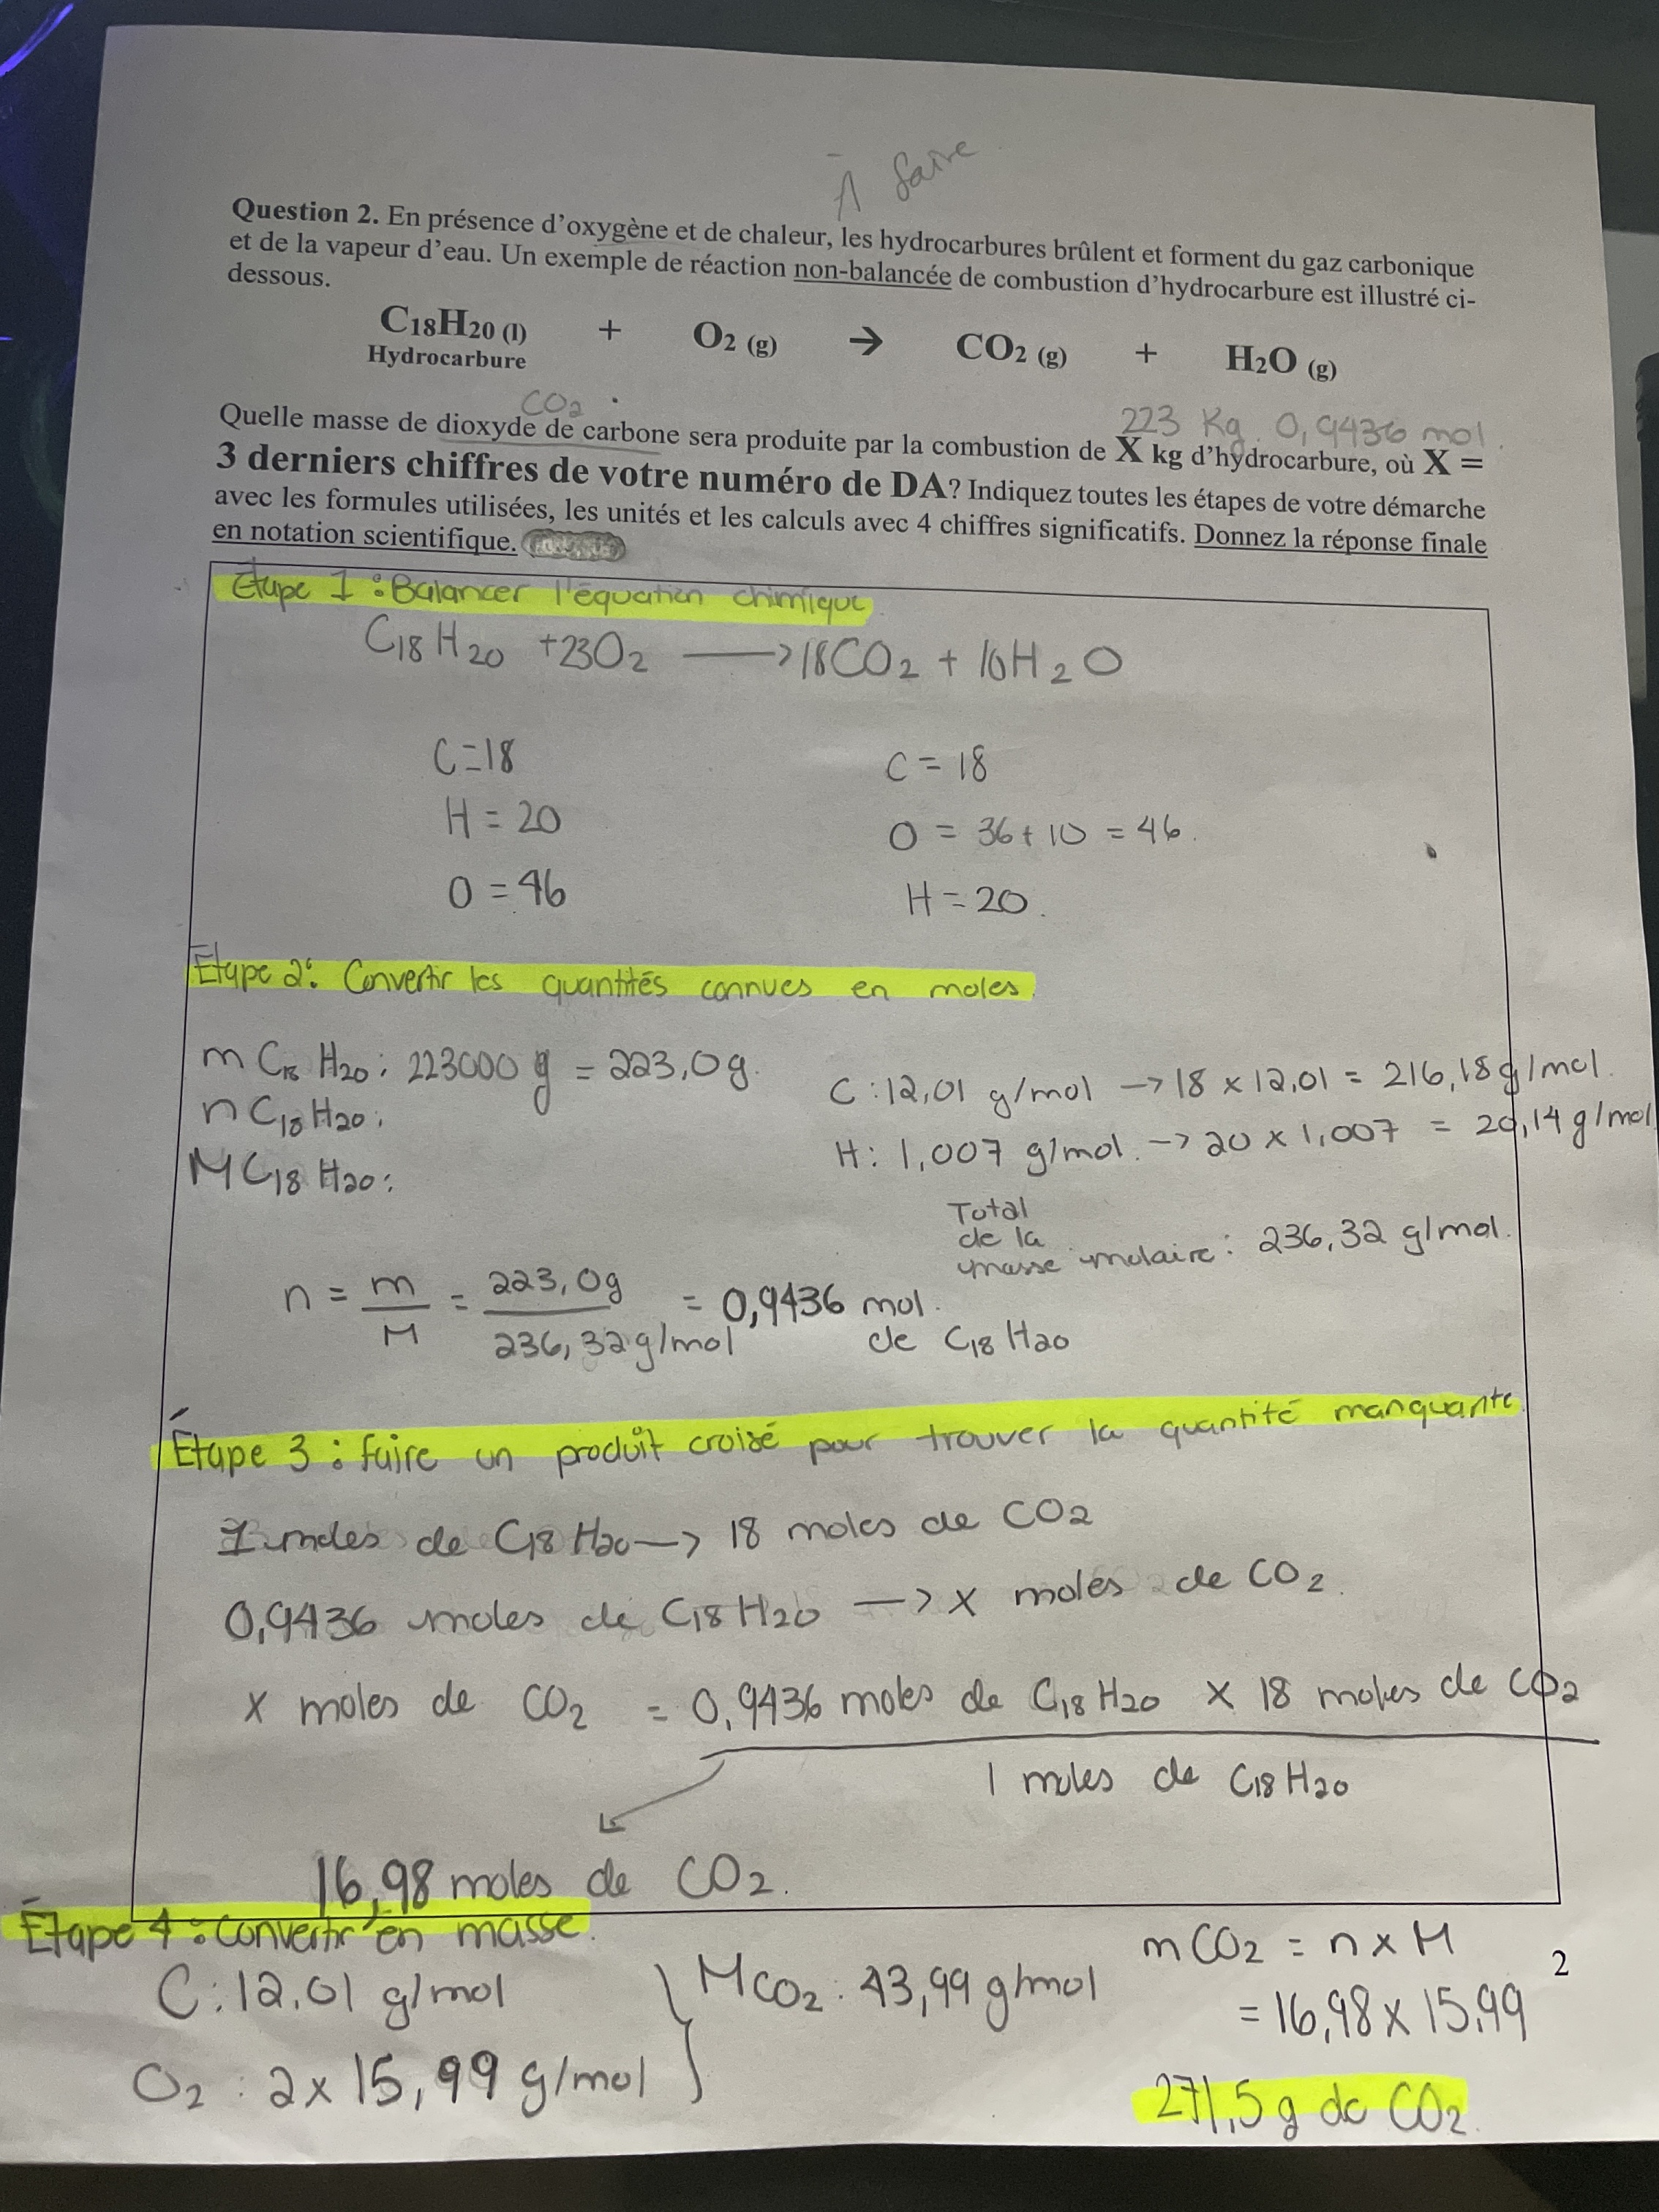 À faire
Question 2. En présence d'oxygène et de chaleur, les hydrocarbures brûlent et forment du gaz carbonique
et de la vapeur d'eau. Un exemple de réaction non-balancée de combustion d'hydrocarbure est illustré ci-
dessous.
C18H20 (l) + O2 (g) → CO2 (g) + H2O (g)
Hydrocarbure
CO2 223 Kg 0,9436 mol.
Quelle masse de dioxyde de carbone sera produite par la combustion de X kg d'hydrocarbure, où X =
3 derniers chiffres de votre numéro de DA? Indiquez toutes les étapes de votre démarche
avec les formules utilisées, les unités et les calculs avec 4 chiffres significatifs. Donnez la réponse finale
en notation scientifique.
Étape 1 : Balancer l'équation chimique
C18H20 +23O2 → 18CO2 + 10H2O
C=18 C = 18
H = 20 O = 36+10 = 46.
O = 46 H = 20.
Étape 2: Convertir les quantités connues en moles.
m C18 H20 : 223000 g = 223,0g. C :12,01 g/mol → 18 x 12,01 = 216,18g/mol.
n C18 H20: H: 1,007 g/mol. → 20 x 1,007 = 20,14 g/mol
M C18 H20:
Total
de la
masse molaire : 236,32 g/mol.
n = m/M = 223,0g / 236,32g/mol = 0,9436 mol.
de C18 H20
Étape 3 : faire un produit croisé pour trouver la quantité manquante.
1 moles de C18 H20 → 18 moles de CO2
0,9436 moles de C18 H20 → x moles de CO2.
x moles de CO2 = 0,9436 moles de C18 H20 x 18 moles de CO2
1 moles de C18 H20
16,98 moles de CO2.
Étape 4 : Convertir en masse.
C : 12,01 g/mol } MCO2 : 43,99 g/mol mCO2 = n x M
2
= 16,98 x 15,99
O2 : 2x 15,99 g/mol
271,5g de CO2.